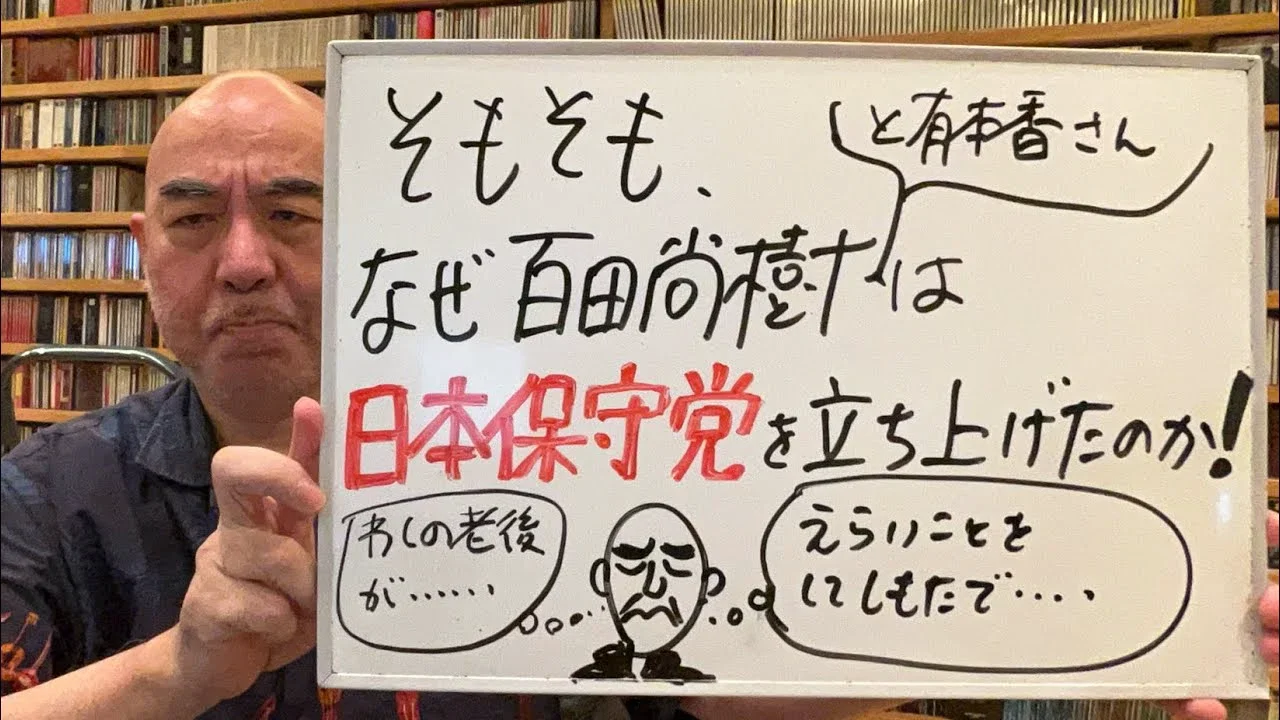 そもそも、
と有本香さん
なぜ百田尚樹は
日本保守党を立ち上げたのか!
わしの老後
が……
えらいことを
してしもたで‥‥、